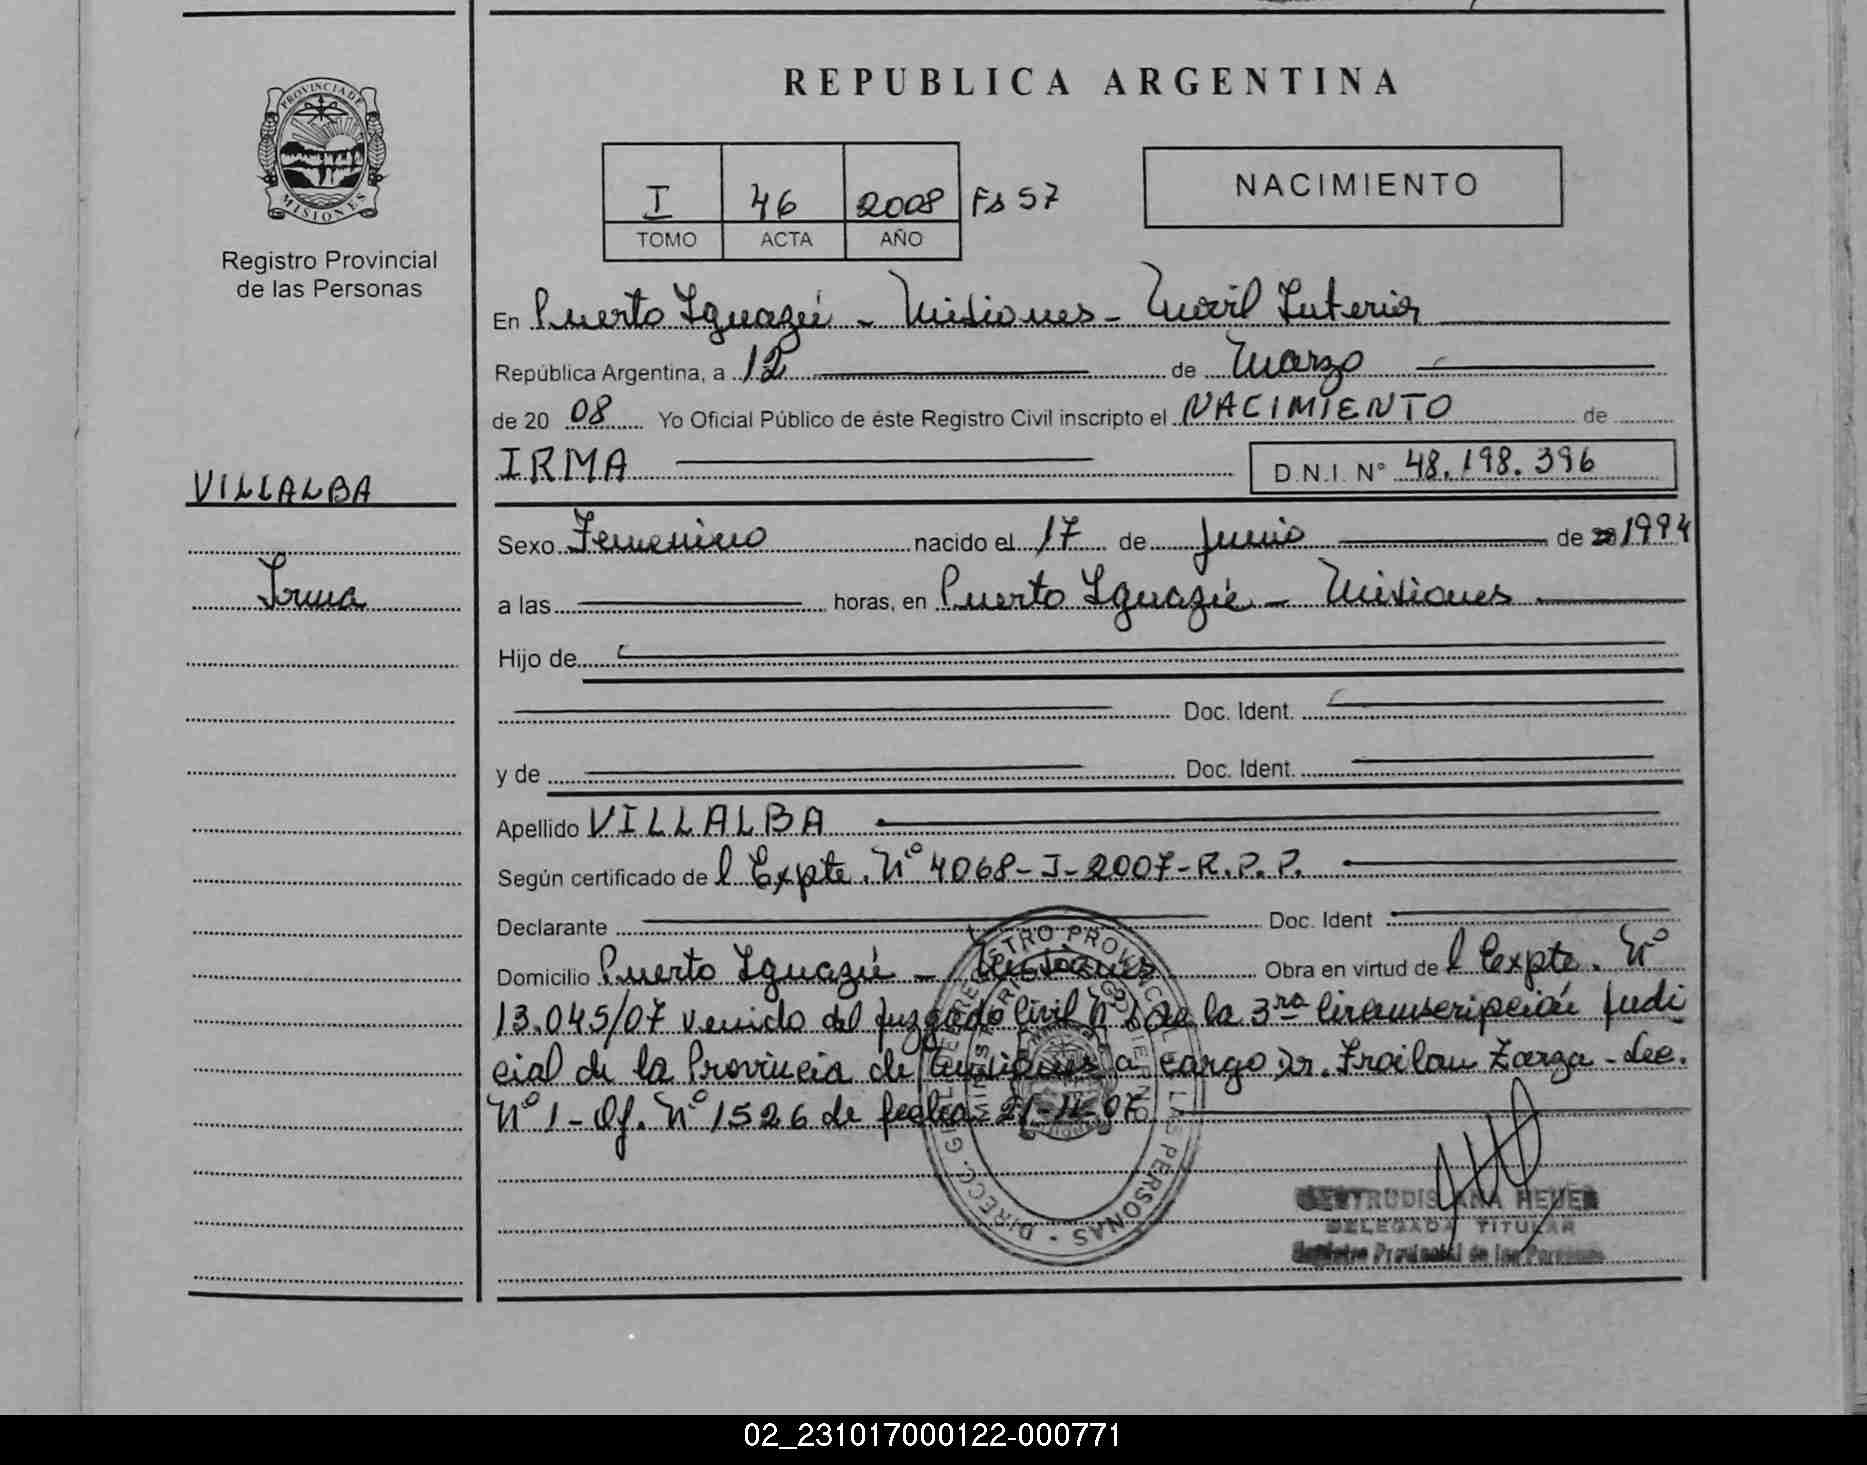 REPUBLICA ARGENTINA
PROVINCIA DE
MISIONES
Registro Provincial
de las Personas
I 46 2008 Fs 57
TOMO ACTA AÑO
NACIMIENTO
En Puerto Iguazú - Misiones - Movil Interior
República Argentina, a 12 de Marzo
de 20 08 Yo Oficial Público de éste Registro Civil inscripto el NACIMIENTO de
IRMA D.N.I. Nº 48.198.396
VILLALBA
Sexo Femenino nacido el 17 de Junio de 20 1994
Irma
a las horas, en Puerto Iguazú - Misiones
Hijo de
Doc. Ident.
y de Doc. Ident.
Apellido VILLALBA
Según certificado de l Expte. Nº 4068-I-2007-R.P.P.
Declarante Doc. Ident
Domicilio Puerto Iguazú - Misiones Obra en virtud de l Expte. Nº
13.045/07 venido del juzgado Civil Nº de la 3ra circunscripción judi
cial de la Provincia de Misiones a cargo Dr. Froilan Zarza - Sec.
Nº 1 - Of. Nº 1526 de fecha 21-11-07
DIRECC. GRAL. DE REGISTRO PROVINCIAL LAS PERSONAS
MINISTERIO GOBIERNO
GERTRUDIS ANA HEUER
DELEGADA TITULAR
Registro Provincial de las Personas
02_231017000122-000771